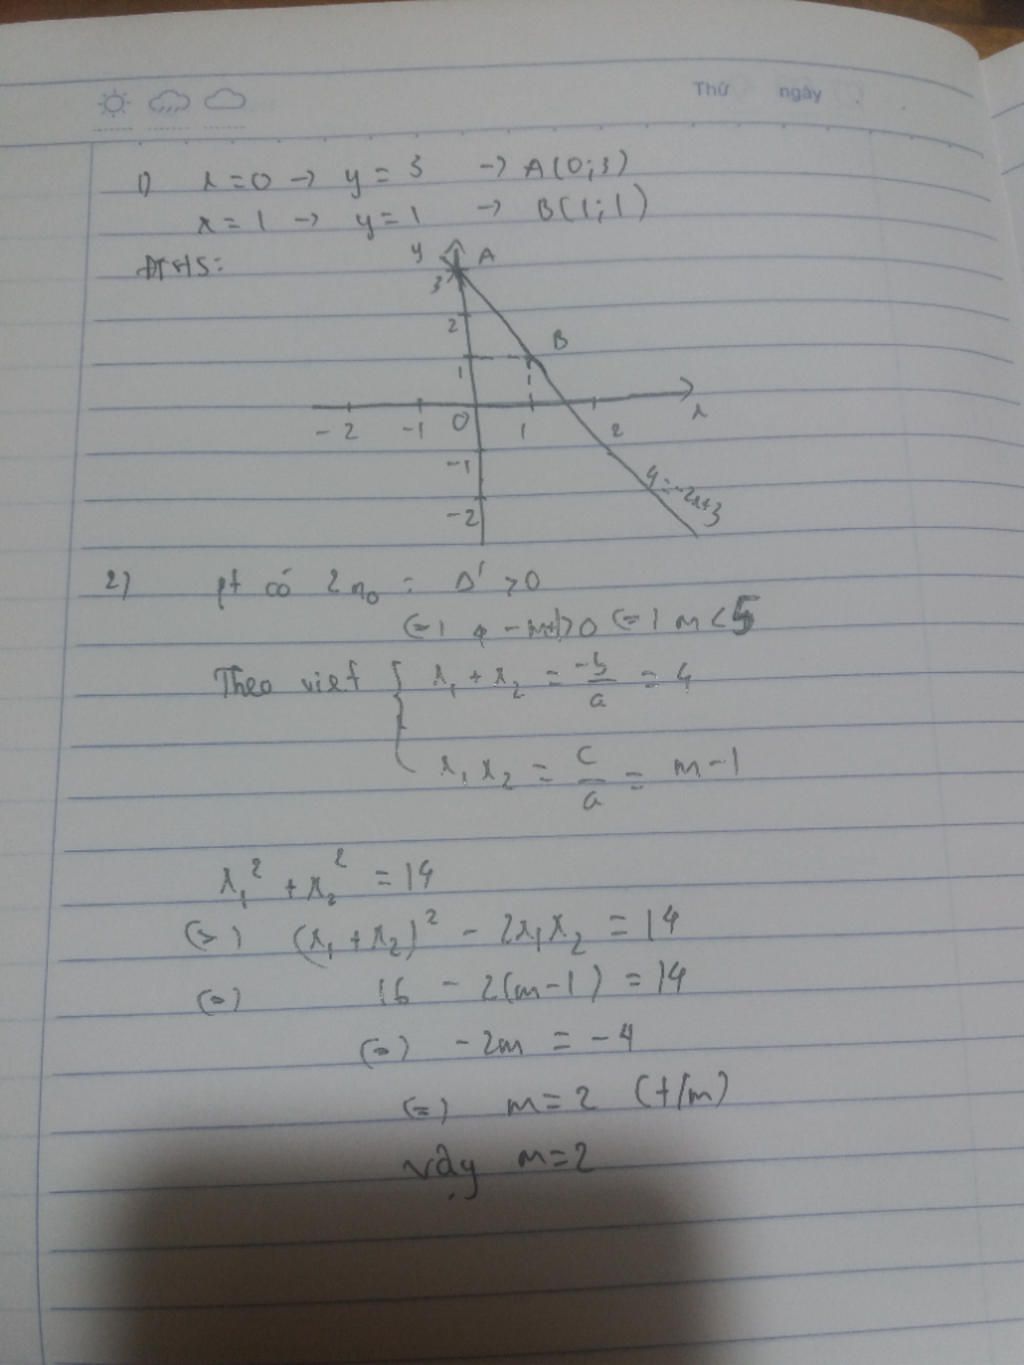 Thứ ngày
1) x=0 → y = 3 → A(0;3)
x = 1 → y=1 → B(1;1)
ĐTHS:
y A
3
2
B
1
-2 -1 0 1 2 x
-1
y=-2x+3
-2
2) pt có 2 no : Δ' >0
(=) 4 -m+1>0 (=) m<5
Theo viet { x₁ + x₂ = -b/a = 4
x₁ x₂ = c/a = m-1
x₁² + x₂² = 14
(=) (x₁ + x₂)² - 2x₁x₂ = 14
(=) 16 - 2(m-1) = 14
(=) -2m = -4
(=) m=2 (t/m)
vậy m=2